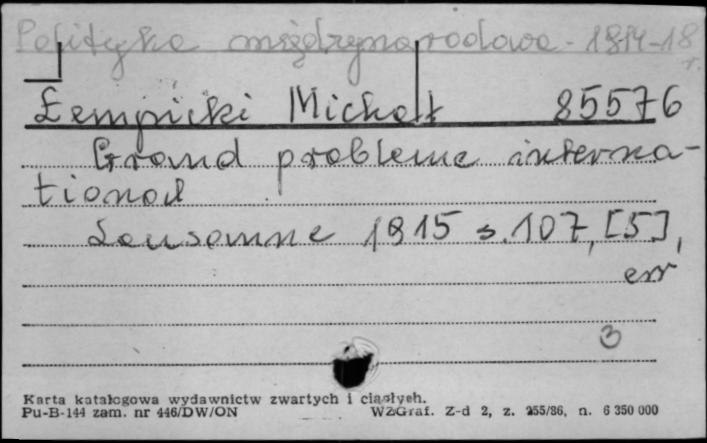 Polityka międzynarodowa - 1914-18 r.
Łempicki Michał 85576
Grand probleme interna-
tional
Lausanne 1915 s. 107, [5],
err
3
Karta katalogowa wydawnictw zwartych i ciągłych.
Pu-B-144 zam. nr 446/DW/ON WZGraf. Z-d 2, z. 255/86, n. 6 350 000